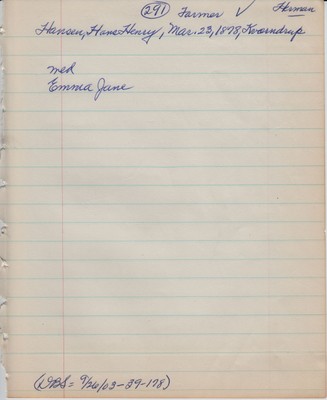 (291) Farmer ✓ Herman
Hansen, Hans Henry, Mar. 23, 1878, Kværndrup
med
Emma Jane
(DBS = 9/26/03-39-178)